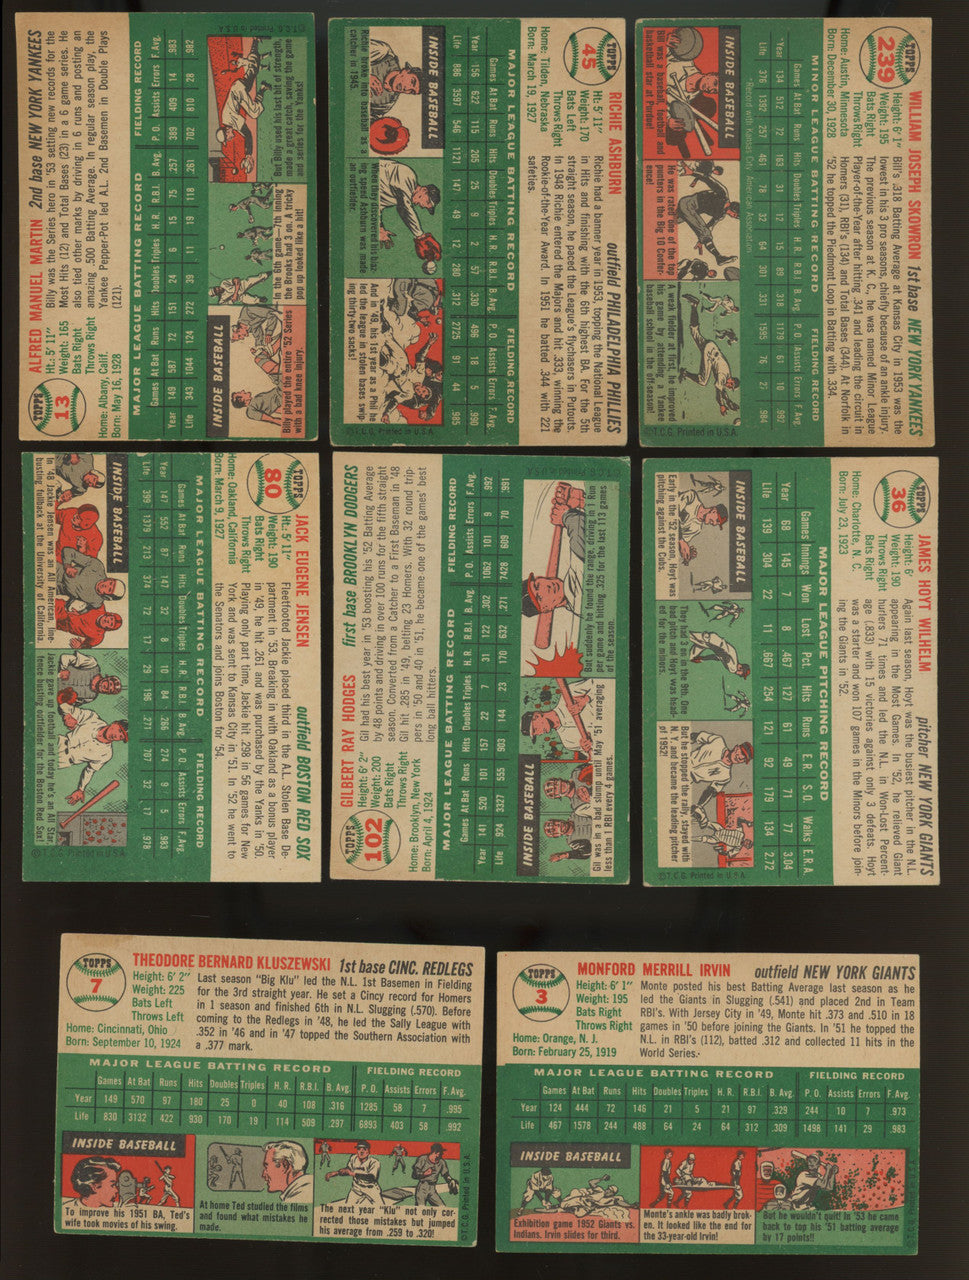 TOPPS
13
ALFRED MANUEL MARTIN 2nd base NEW YORK YANKEES
Ht.: 5' 11"
Weight: 165
Bats Right
Throws Right
Home: Albany, Calif.
Born: May 16, 1928
Billy was the Series hero in '53 setting new records for the
Most Hits (12) and Total Bases (23) in a 6 game series. He
also tied other marks by driving in 6 runs and posting an
amazing .500 Batting Average. In regular season play, the
Yankee Pepper-Pot led A.L. 2nd Basemen in Double Plays
(121).
MAJOR LEAGUE BATTING RECORD FIELDING RECORD
Games At Bat Runs Hits Doubles Triples H.R. R.B.I. B. Avg. P.O. Assists Errors F. Avg.
Year 149 587 72 151 24 6 15 75 .257 389 409 14 .983
Life 343 1064 124 272 39 11 18 118 .261 702 810 28 .982
INSIDE BASEBALL
Billy played the entire '52 Series
with a bad knee injury!
In the 6th game—7th inning
the Brooks had 3 on. A tricky
pop up looked like a hit!
But using his last bit of strength,
Billy made a great catch, saving the game
and series for the Yanks!
TOPPS
45
RICHIE ASHBURN outfield PHILADELPHIA PHILLIES
Ht: 5' 11"
Weight: 170
Bats Left
Throws Right
Home: Tilden, Nebraska
Born: March 19, 1927
Richie had a banner year in 1953, topping the National League
in Hits and finishing with the 6th highest BA. For the 5th
straight season, he paced the League's flychasers in Putouts.
In 1948 Richie entered the Majors and hit .333, winning the
Rookie-of-the-Year Award. In 1951 he batted .344 with 221
safeties.
MAJOR LEAGUE BATTING RECORD FIELDING RECORD
Games At Bat Runs Hits Doubles Triples H.R. R.B.I. B. Avg. P.O. Assists Errors F. Avg.
Year 156 622 110 205 25 9 2 57 .330 496 18 5 .990
Life 886 3597 546 1121 147 49 12 280 .312 2725 89 44 .985
INSIDE BASEBALL
Richie broke into baseball as a
catcher in 1945.
When they discovered his blaz-
ing speed Ashburn was made
an outfielder!
And in '48, his 1st year as a Phil he
led the league in stolen bases swip-
ing thirty-two sacks!
©T.C.G. Printed in U.S.A.
TOPPS
239
WILLIAM JOSEPH SKOWRON 1st base NEW YORK YANKEES
Height: 6' 1"
Weight: 195
Bats Right
Throws Right
Home: Austin, Minnesota
Born: December 30, 1928
Bill's .318 Batting Average at Kansas City in 1953 was the
lowest in his 3 pro seasons, chiefly because of an ankle injury.
The previous season at K. C., he was named Minor League
Player-of-the-Year after hitting .341 and leading the circuit in
Homers (31), RBI's (134) and Total Bases (344). At Norfolk in
'52 he topped the Piedmont Loop in Batting with .334.
MINOR LEAGUE BATTING RECORD FIELDING RECORD
Games At Bat Runs Hits Doubles Triples H.R. R.B.I. B. Avg. P.O. Assists Errors F. Avg.
*Record with Kansas City, American Association
INSIDE BASEBALL
Bill was a football, baseball and
basketball star at Purdue!
He was rated one of the top
punters in the Big 10 Confer-
ence!
A weak fielder at first, he improved
his game by attending a Yankee
baseball school in the off-season!
©T.C.G. Printed in U.S.A.
TOPPS
80
JACK EUGENE JENSEN outfield BOSTON RED SOX
Ht.: 5' 11"
Weight: 190
Bats Right
Throws Right
Home: Oakland, California
Born: March 9, 1927
Fleetfooted Jackie placed third in the A.L. Stolen Base De-
partment in '53. Breaking in with Oakland as a bonus player
in '49, he hit .261 and was purchased by the Yanks in '50.
Playing only part time, Jackie hit .298 in 56 games for New
York and was sent to Kansas City in '51. In '52 he went to
the Senators and joins Boston for '54.
MAJOR LEAGUE BATTING RECORD FIELDING RECORD
Games At Bat Runs Hits Doubles Triples H.R. R.B.I. B. Avg. P.O. Assists Errors F. Avg.
INSIDE BASEBALL
In '48 Jackie Jensen was an All American, line-
busting fullback at the University of California!
Jackie gave up football and today he's an All Star
fence busting outfielder for the Boston Red Sox!
TOPPS
102
GILBERT RAY HODGES first base BROOKLYN DODGERS
Height: 6' 2"
Weight: 200
Bats Right
Throws Right
Home: Brooklyn, New York
Born: April 4, 1924
Gil had his best year in '53 boosting his '52 Batting Average
by 48 points and driving in over 100 runs for the fifth straight
season. Converted from a Catcher to a First Baseman in '48
Gil hit .285 in '49, belting 23 Homers. With 32 round trip-
pers in '50 and 40 in '51, he became one of the games best
long ball hitters.
MAJOR LEAGUE BATTING RECORD FIELDING RECORD
Games At Bat Runs Hits Doubles Triples H.R. R.B.I. B. Avg. P.O. Assists Errors F. Avg.
Year 141 520 101 157 22 7 31 122 .302 1062 101 9 .992
Life 924 3327 555 903 144 23 170 632 .271 7428 609 70 .991
INSIDE BASEBALL
Gil was in a bad slump until May '53, averaging
less than 1 RBI every 4 games.
But suddenly he found the range, driving in 1 Run
per game and hitting .325 for the last 113 games
of the season.
TOPPS
36
JAMES HOYT WILHELM pitcher NEW YORK GIANTS
Height: 6'
Weight: 190
Bats Right
Throws Right
Home: Charlotte, N. C.
Born: July 23, 1923
Again last season, Hoyt was the busiest pitcher in the N.L.
appearing in the Most Games. In '52, he relieved Giant
hurlers 71 times and led the N.L. in Won-Lost Percent-
age (.833) with 15 victories against only 3 defeats. Hoyt
was a starter and won 107 games in the Minors before join-
ing the Giants in '52.
MAJOR LEAGUE PITCHING RECORD
Games Innings Won Lost Pct. Hits Runs E.R. S.O. Walks E.R.A.
Year 68 145 7 8 .467 127 61 49 71 77 3.04
Life 139 304 22 11 .667 254 121 92 179 134 2.72
INSIDE BASEBALL
Early in the '52 season, Hoyt was
pitching against the Cubs.
They had 2 on in the 9th. One
bad pitch and Hoyt was head-
ed for the Minors!
But he stopped the rally, stayed with
N.Y. and became the leading pitcher
of 1952!
©T.C.G. Printed in U.S.A.
TOPPS
7
THEODORE BERNARD KLUSZEWSKI 1st base CINC. REDLEGS
Height: 6' 2"
Weight: 225
Bats Left
Throws Left
Home: Cincinnati, Ohio
Born: September 10, 1924
Last season "Big Klu" led the N.L. 1st Basemen in Fielding
for the 3rd straight year. He set a Cincy record for Homers
in 1 season and finished 6th in N.L. Slugging (.570). Before
coming to the Redlegs in '48, he led the Sally League with
.352 in '46 and in '47 topped the Southern Association with
a .377 mark.
MAJOR LEAGUE BATTING RECORD FIELDING RECORD
Games At Bat Runs Hits Doubles Triples H.R. R.B.I. B. Avg. P.O. Assists Errors F. Avg.
Year 149 570 97 180 25 0 40 108 .316 1285 58 7 .995
Life 830 3132 422 930 170 19 114 509 .297 6893 403 58 .992
INSIDE BASEBALL
To improve his 1951 BA, Ted's
wife took movies of his swing.
At home Ted studied the films
and found what mistakes he
made.
The next year "Klu" not only cor-
rected those mistakes but jumped
his average from .259 to .320!
©T.C.G. Printed in U.S.A.
TOPPS
3
MONFORD MERRILL IRVIN outfield NEW YORK GIANTS
Height: 6' 1"
Weight: 195
Bats Right
Throws Right
Home: Orange, N. J.
Born: February 25, 1919
Monte posted his best Batting Average last season as he
led the Giants in Slugging (.541) and placed 2nd in Team
RBI's. With Jersey City in '49, Monte hit .373 and .510 in 18
games in '50 before joining the Giants. In '51 he topped the
N.L. in RBI's (112), batted .312 and collected 11 hits in the
World Series.
MAJOR LEAGUE BATTING RECORD FIELDING RECORD
Games At Bat Runs Hits Doubles Triples H.R. R.B.I. B. Avg. P.O. Assists Errors F. Avg.
Year 124 444 72 146 21 5 21 97 .329 244 10 7 .973
Life 467 1578 244 488 64 24 64 312 .309 1498 141 29 .983
INSIDE BASEBALL
Exhibition game 1952 Giants vs.
Indians. Irvin slides for third.
Monte's ankle was badly brok-
en. It looked like the end for
the 33-year-old Irvin!
But he wouldn't quit! In '53 he came
back to top his '51 batting average
by 17 points!!